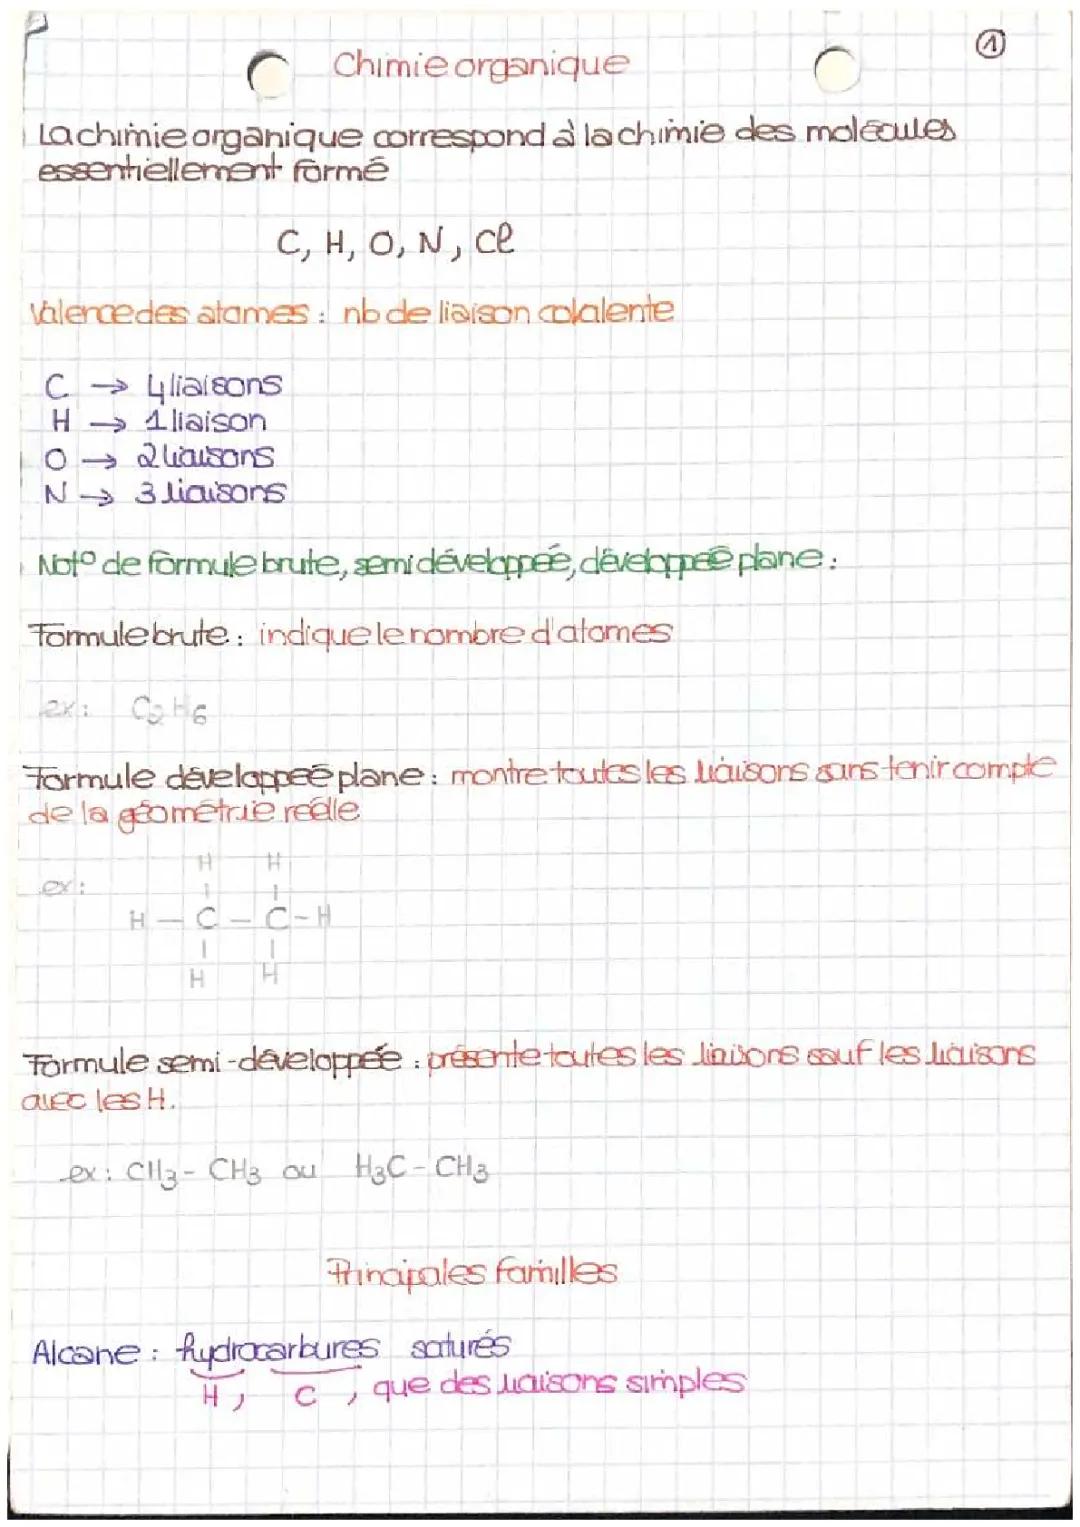 ①
Chimie organique
La chimie organique correspond à la chimie des molécules
essentiellement formé
C, H, O, N, Cl
Valence des atomes : nb de liaison colalente
C → 4 liaisons
H → 1 liaison
O → 2 liaisons
N → 3 liaisons
Not° de formule brute, semi développée, développée plane :
Formule brute : indique le nombre d'atomes
ex : C₂H₆
Formule développée plane : montre toutes les liaisons sans tenir compte
de la géométrie réelle
H H
ex :
H — C — C — H
H H
Formule semi-développée : présente toutes les liaisons sauf les liaisons
avec les H.
ex : CH₃ - CH₃ ou H₃C - CH₃
Principales familles
Alcane : hydrocarbures saturés
H, C, que des liaisons simples